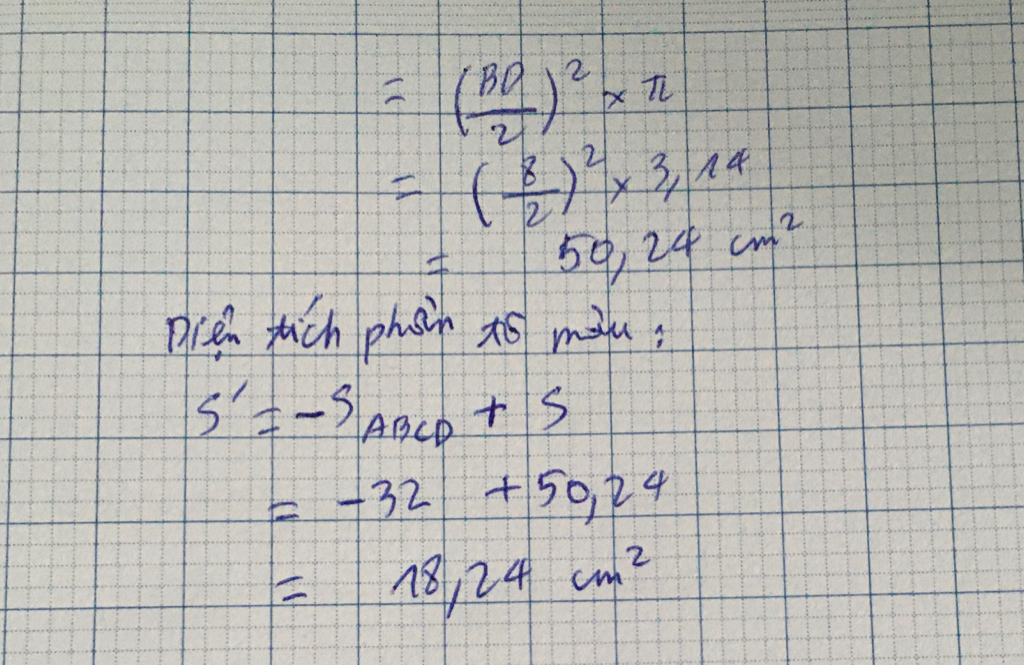 = (BD/2)² × π
= (8/2)² × 3,14
= 50,24 cm²
Diện tích phần tô màu :
S' = -S ABCD + S
= -32 + 50,24
= 18,24 cm²